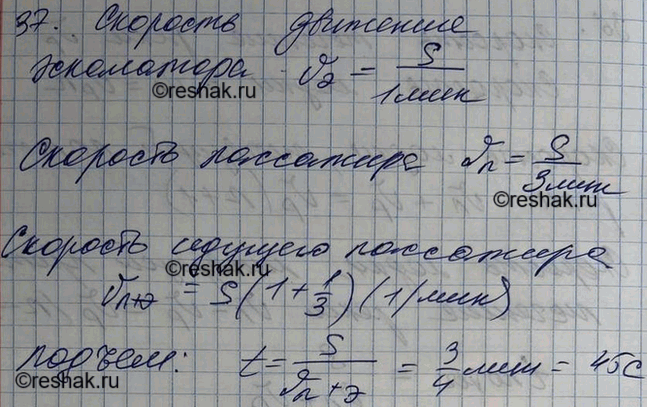 37. Скорость движение
эскалатора υэ = S / 1 мин
©reshak.ru
©reshak.ru
Скорость пассажира υп = S / 3 мин
©reshak.ru
Скорость идущего пассажира
©reshak.ru
υп+э = S (1 + 1/3) (1/мин)
подъем: t = S / υп+э = 3/4 мин = 45 с
©reshak.ru
©reshak.ru